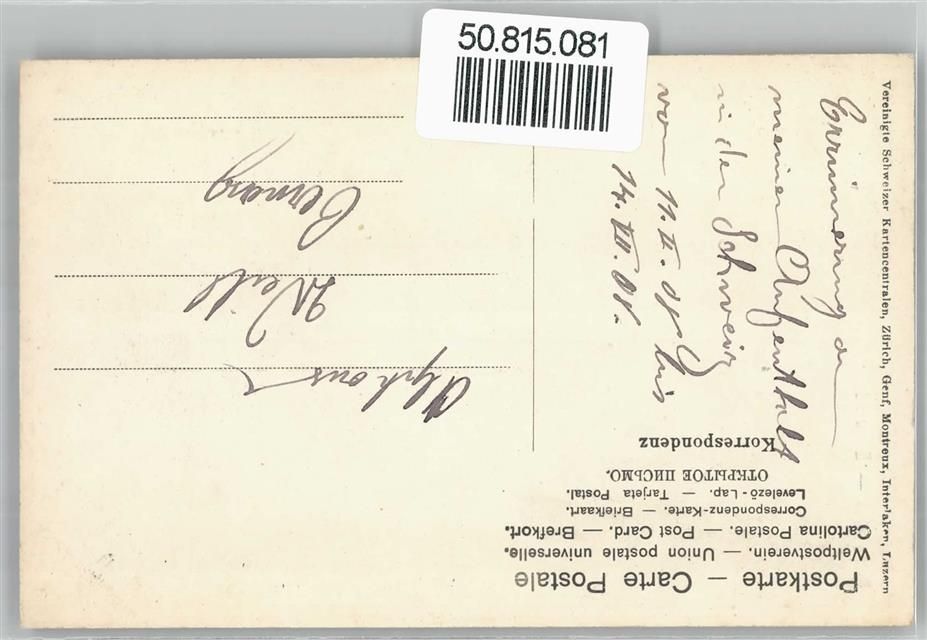 50.815.081
Postkarte — Carte Postale
Weltpostverein. — Union postale universelle.
Cartolina Postale. — Post Card. — Brefkort.
Correspondenz-Karte. — Briefkaart.
Levelező-Lap. — Tarjeta Postal.
ОТКРЫТОЕ ПИСЬМО.
Korrespondenz
Erinnerung an
meinen Aufenthalt
in der Schweiz
vom 11. II. 08 bis
14. VII. 08.
Alphons
Weill
Vereinigte Schweizer Kartencentralen, Zürich, Genf, Montreux, Interlaken, Luzern